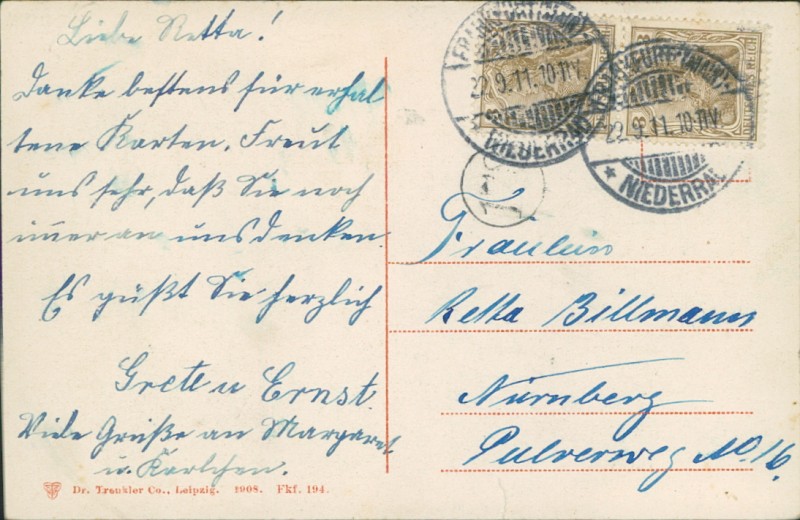 Liebe Retta!
Danke bestens für erhal
tene Karten. Freut
uns sehr, daß Sie noch
imer an uns denken.
Es güßt Sie herzlich
Grete u Ernst
Viele Grüße an Margaret
u. Karlchen.
Dr. Trenkler Co., Leipzig. 1908. Fkf. 194.
FRANKFURT (MAIN)
22.9.11.10-11V.
NIEDERRAD
FRANKFURT (MAIN)
22.9.11.10-11V.
* NIEDERRAD
DEUTSCHES REICH
3
3
Fräulein
Retta Billmann
Nürnberg
Pulverweg No 16.